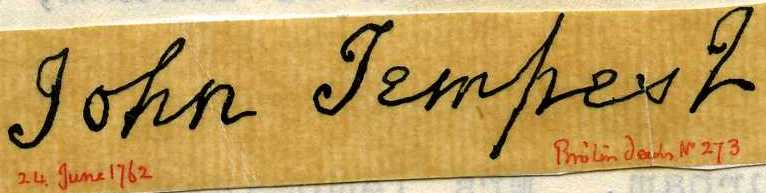 John Tempest
24. June 1762
deeds Nº 273